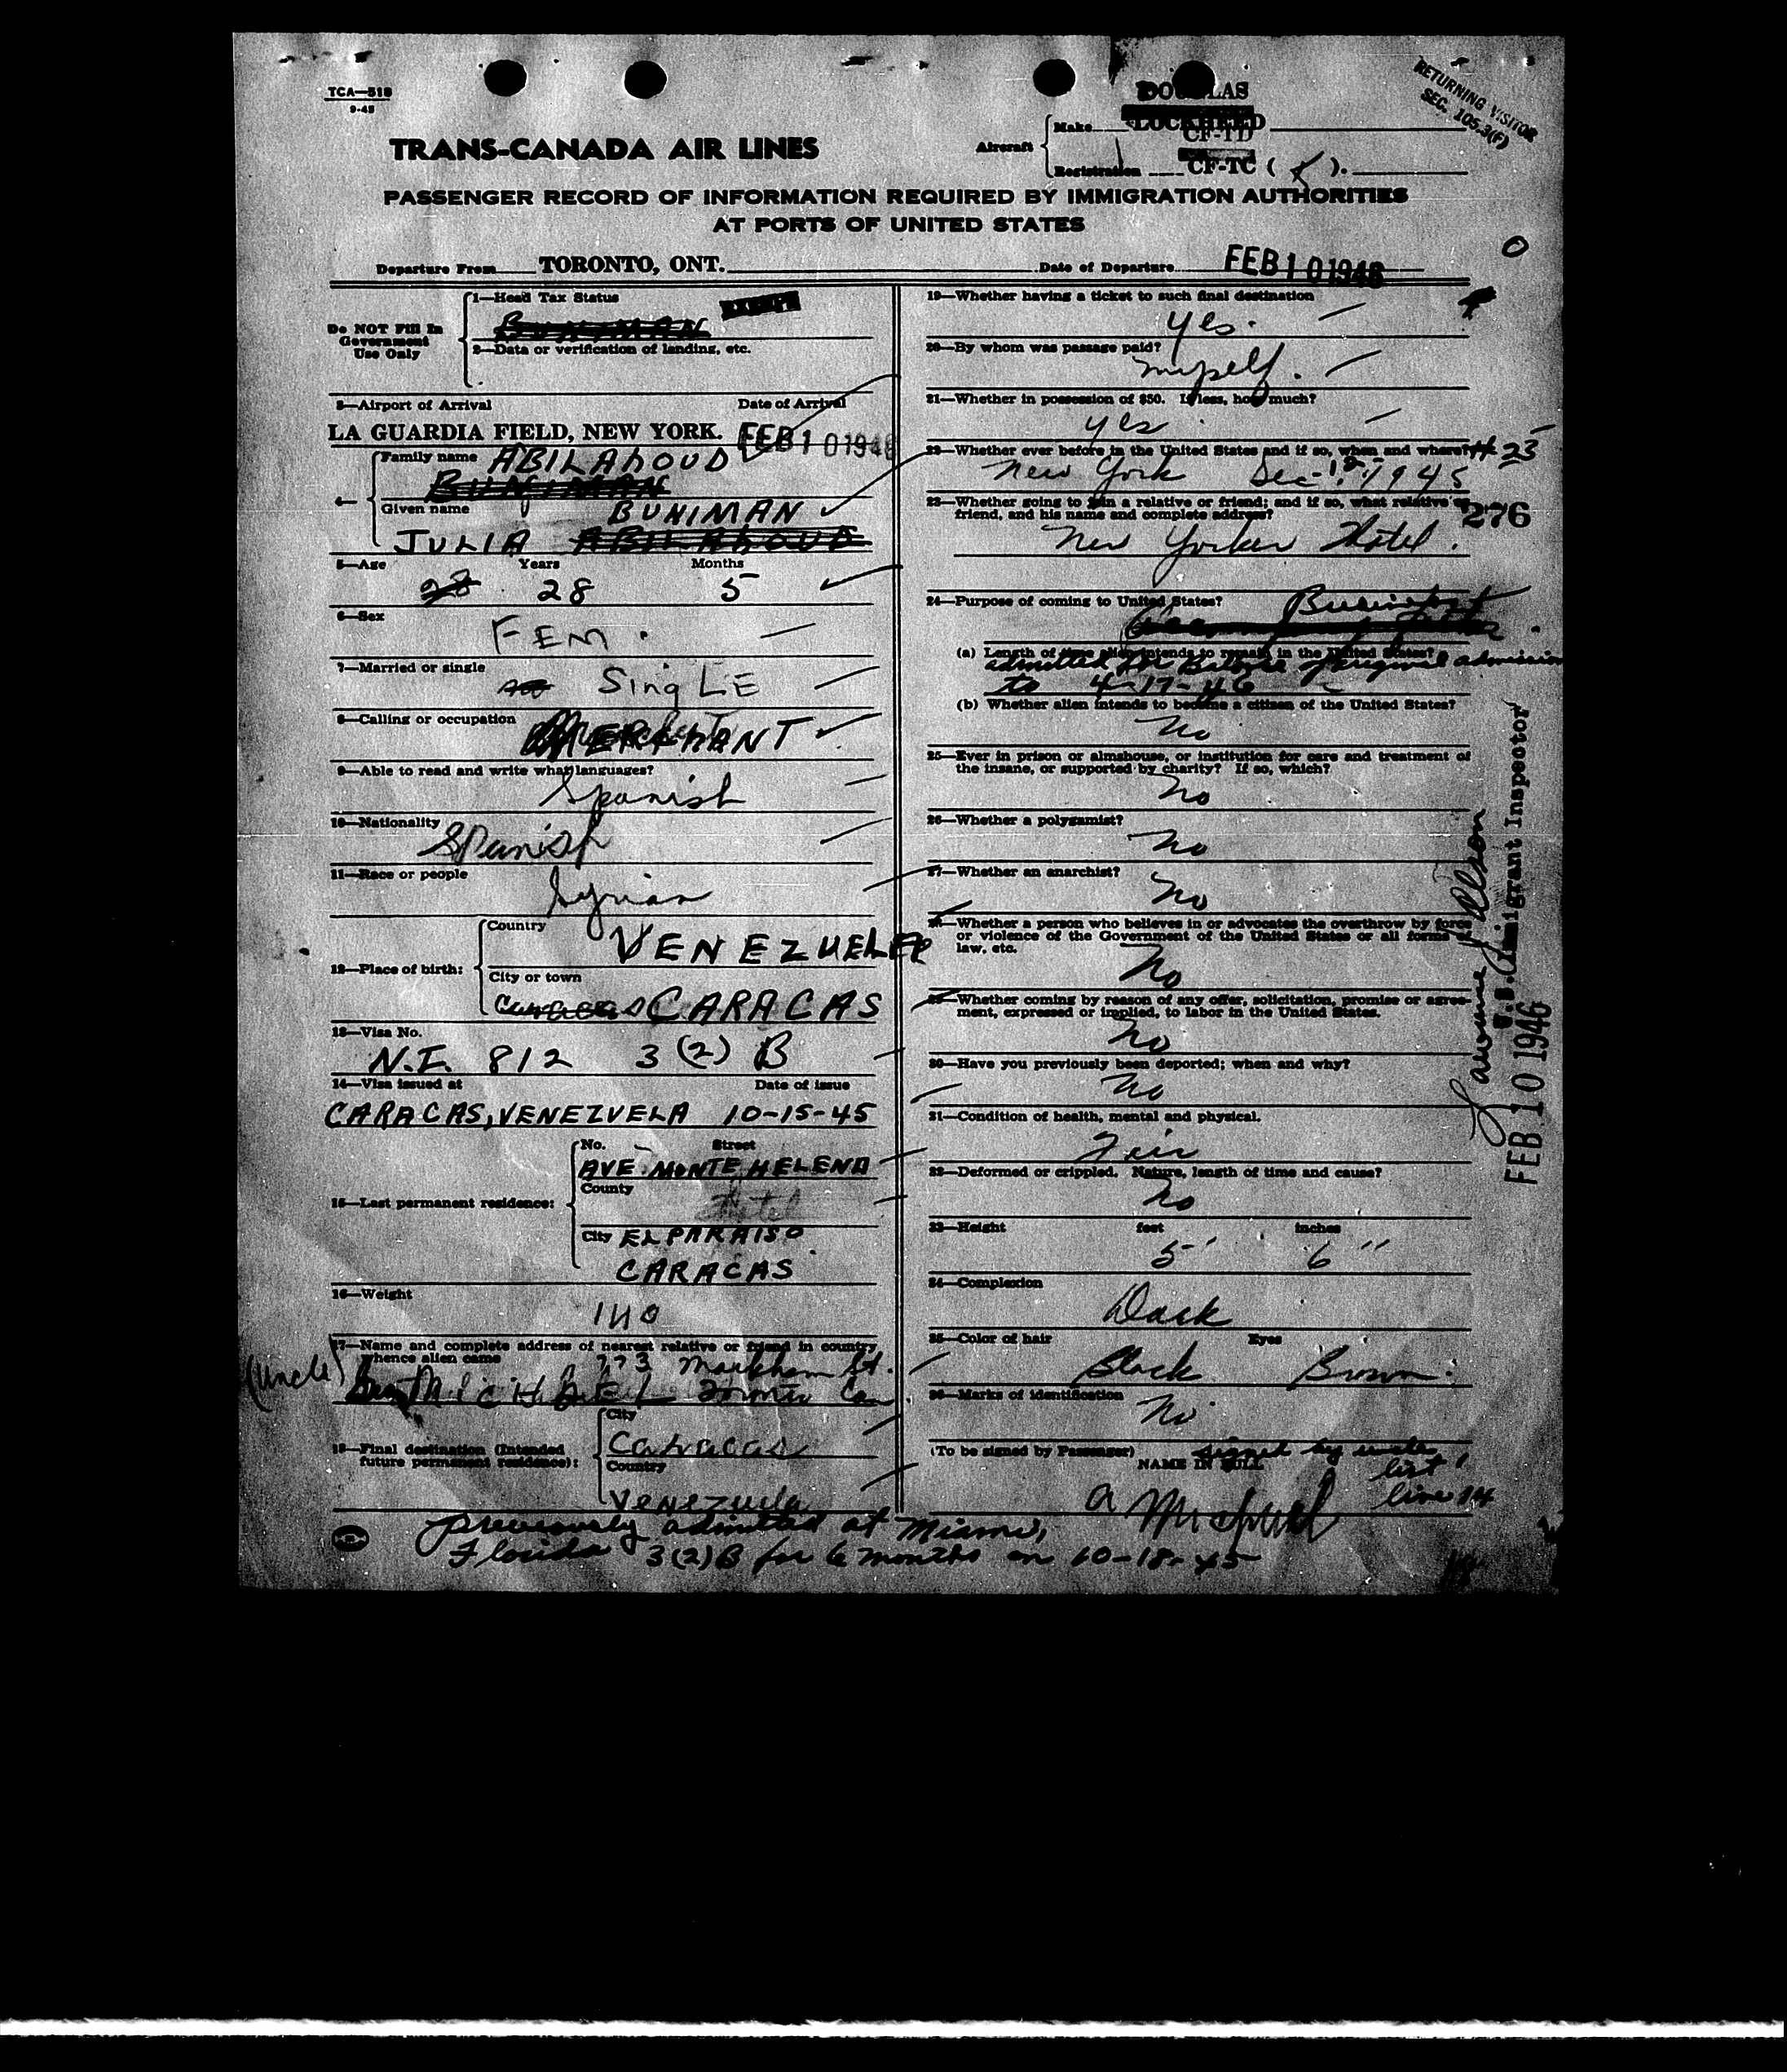 TCA—518
9-45
DOUGLAS
LOCKHEED
RETURNING VISITOR
SEC. 105.3(F)
TRANS-CANADA AIR LINES
Aircraft
Make
CF-TD
Registration CF-TC ( ).
PASSENGER RECORD OF INFORMATION REQUIRED BY IMMIGRATION AUTHORITIES
AT PORTS OF UNITED STATES
Departure From TORONTO, ONT. Date of Departure FEB 10 1946
Do NOT Fill In
Government
Use Only
1—Head Tax Status
EXEMPT
BUNIMAN
2—Data or verification of landing, etc.
3—Airport of Arrival Date of Arrival
LA GUARDIA FIELD, NEW YORK. FEB 10 1946
4—
Family name ABILAHOUD
BUNIMAN
Given name BUNIMAN
JULIA ABILAHOUD
5—Age Years Months
28 28 5
6—Sex
FEM.
7—Married or single
SingLE
8—Calling or occupation
MERCHANT
9—Able to read and write what languages?
Spanish
10—Nationality
Spanish
11—Race or people
Syrian
12—Place of birth:
Country
VENEZUELA
City or town
Caracas CARACAS
13—Visa No.
N.I. 812 3(2) B
14—Visa issued at Date of issue
CARACAS, VENEZUELA 10-15-45
15—Last permanent residence:
No. Street
AVE. MONTE HELENA
County
Hotel
City EL PARAISO
CARACAS
16—Weight
140
17—Name and complete address of nearest relative or friend in country
whence alien came 773 Markham St.
(Uncle) MICHAEL Toronto Can.
18—Final destination (Intended
future permanent residence):
City
Caracas
Country
Venezuela
19—Whether having a ticket to such final destination
Yes.
20—By whom was passage paid?
myself.
21—Whether in possession of $50. If less, how much?
yes
22—Whether ever before in the United States and if so, when and where?
New York Dec. 18, 1945
23—Whether going to join a relative or friend; and if so, what relative or
friend, and his name and complete address?
276
New Yorker Hotel.
24—Purpose of coming to United States?
(a) Length of time alien intends to remain in the United States?
admitted for Balance of original admission
to 4-17-46
(b) Whether alien intends to become a citizen of the United States?
No
25—Ever in prison or almshouse, or institution for care and treatment of
the insane, or supported by charity? If so, which?
No
26—Whether a polygamist?
No
27—Whether an anarchist?
No
28—Whether a person who believes in or advocates the overthrow by force
or violence of the Government of the United States or all forms of
law, etc.
No
29—Whether coming by reason of any offer, solicitation, promise or agree-
ment, expressed or implied, to labor in the United States.
No
30—Have you previously been deported; when and why?
No
31—Condition of health, mental and physical.
32—Deformed or crippled. Nature, length of time and cause?
No
33—Height feet inches
5' 6''
34—Complexion
Dark
35—Color of hair Eyes
Black Brown.
36—Marks of identification
No
(To be signed by Passenger) signed by uncle
NAME IN FULL
list 1
line 14
A Michael
U.S. Immigrant Inspector
FEB 10 1946
previously admitted at Miami,
Florida 3(2)B for 6 months on 10-18-45